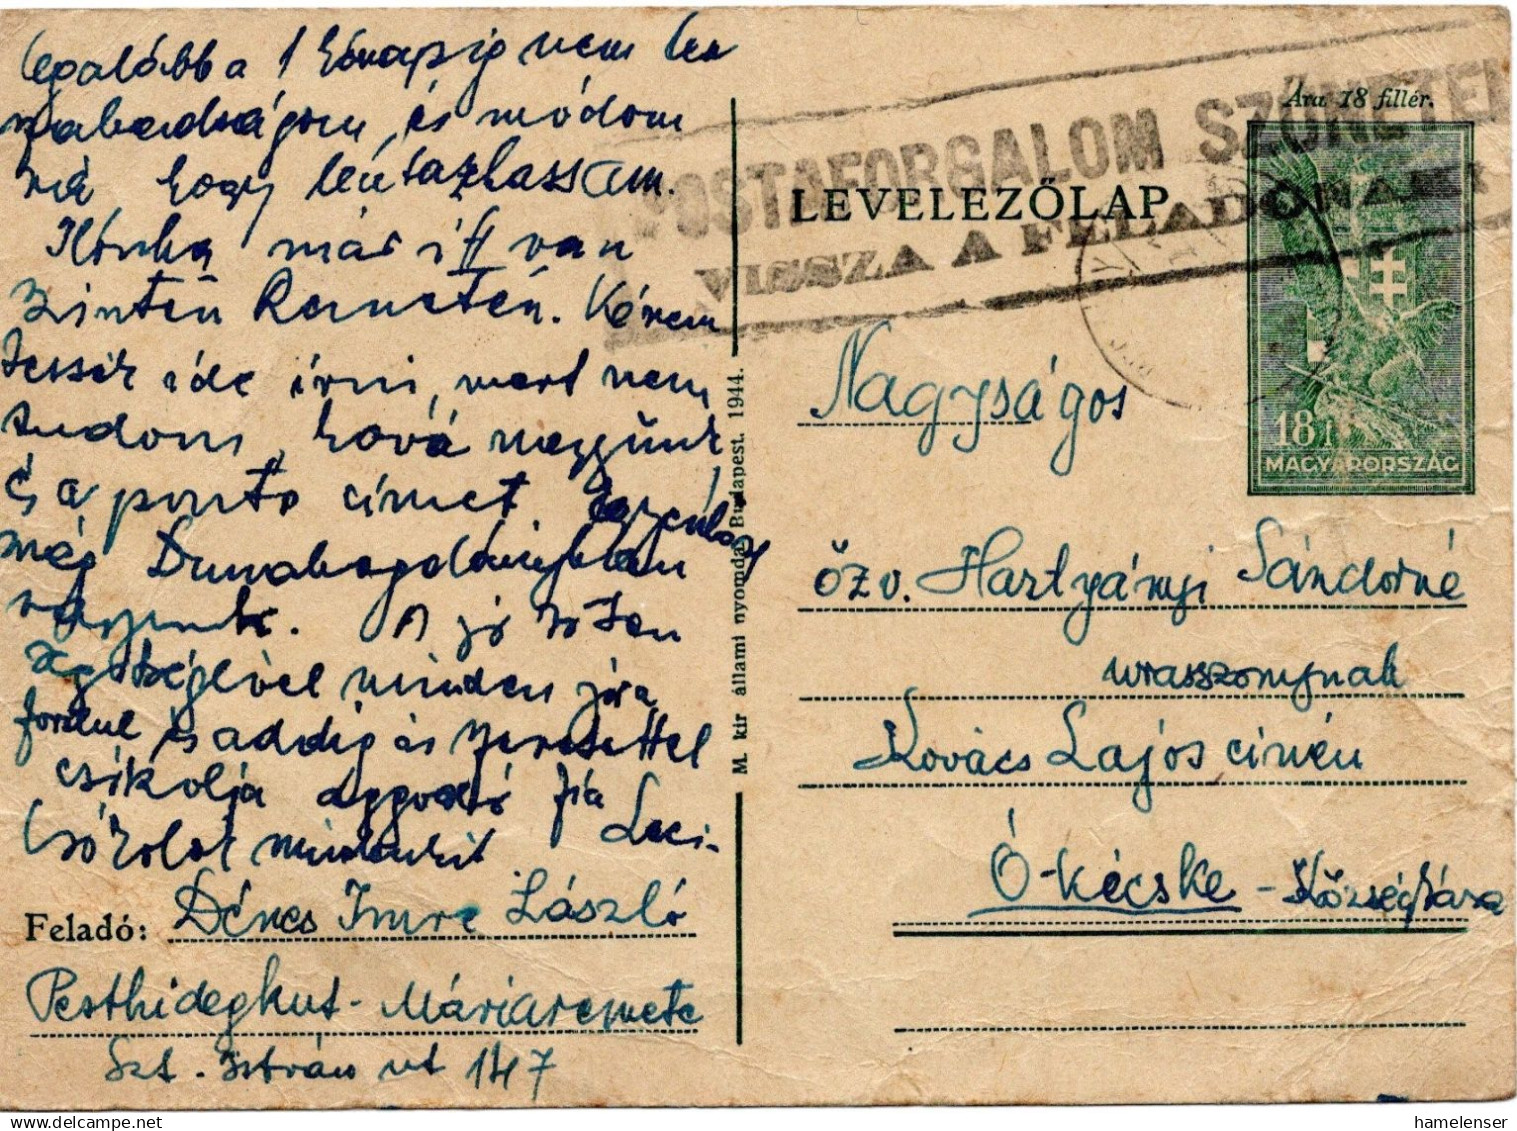 legalább a 1 hónapig nem lesz
szabadságom, és módom
rá hogy leutazhassam.
Ilonka már itt van
szintén Remetén. Kérem
tessék ide írni, mert nem
tudom, hová megyünk
és a pontos címet. Egyenlőre
még Dunabogdányban
vagyunk. A jó Isten
segítségével minden jóra
fordul és addig is szeretettel
csókolja aggódó fia
Csókolok mindenkit Laci.
Feladó: Dénes Imre László
Pesthidegkut - Máriaremete
Szt. István ut 147
M. kir állami nyomda, Budapest. 1944.
Ára 18 fillér.
POSTAFORGALOM SZÜNETEL
VISSZA A FELADÓNAK
LEVELEZŐLAP
18 f
MAGYARORSZÁG
Nagyságos
özv. Hartyányi Sándorné
urasszonynak
Kovács Lajos címén
Ó-Kécske - Községháza
hamelenser